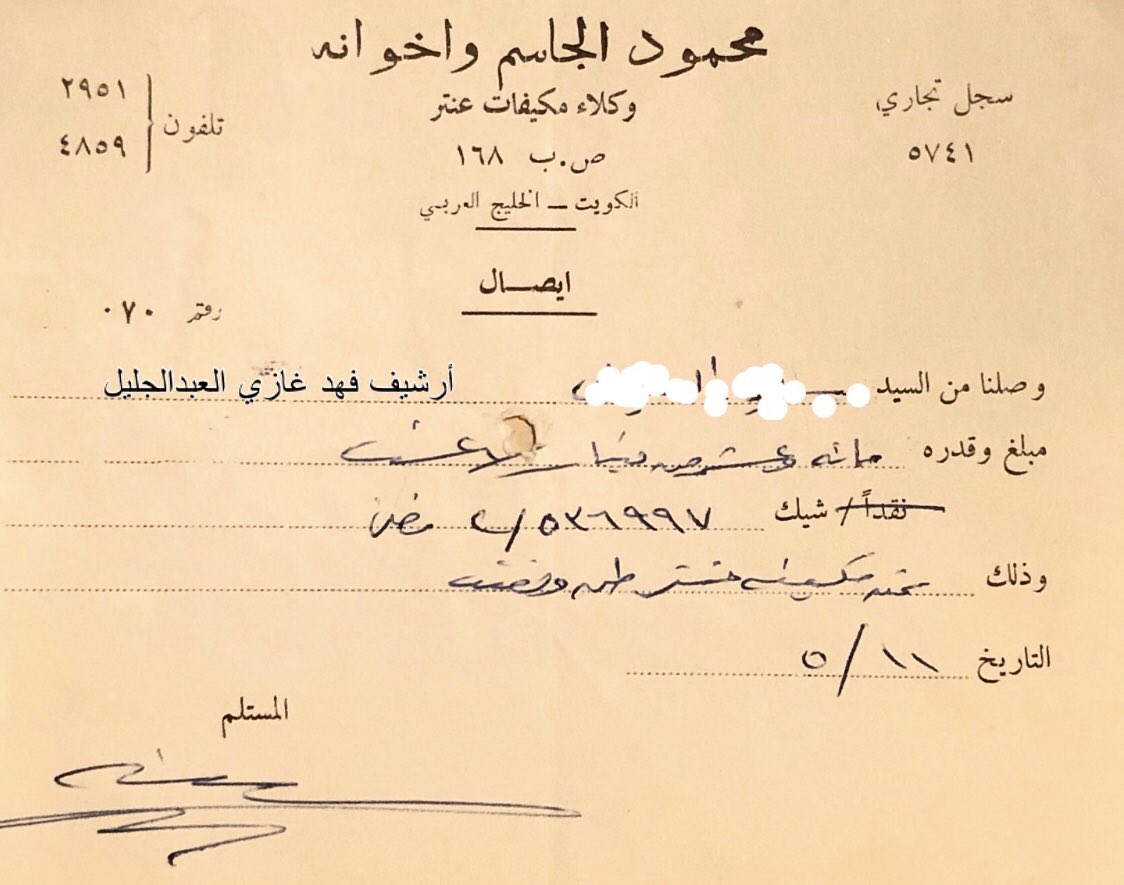 محمود الجاسم واخوانه
وكلاء مكيفات عنتر
ص.ب ١٦٨
الكويت – الخليج العربي
سجل تجاري
٥٧٤١
تلفون
٢٩٥١
٤٨٥٩
ايصال
رقم ٠٧٠
وصلنا من السيد
أرشيف فهد غازي العبدالجليل
مبلغ وقدره مائة وعشرون دينار لا غير
نقداً / شيك ٥٣٦٩٩٧
وذلك ثمن مكيف عنتر
التاريخ ١١ / ٥
المستلم